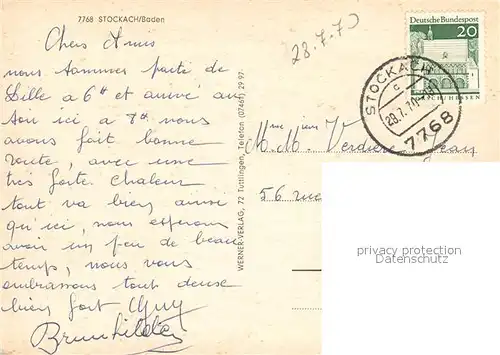 7768 STOCKACH/Baden
Chers Amis
nous sommes partis de
Lille a 6h et arrivé au
ici a 7h nous
avons fait bonne
route, avec une
très forte chaleur
tout va bien ainsi
qu'ici, nous esperons
avoir un peu de beau
temps, nous vous
embrassons tous
bien fort Guy
Brunhilde
WERNER-VERLAG, 72 Tuttlingen, Telefon (07461) 29 97
28.7.70
Deutsche Bundespost
20
HESSEN
STOCKACH
c
28.7.70
7768
M. M. Verdière Jean
56 rue
privacy protection
Datenschutz